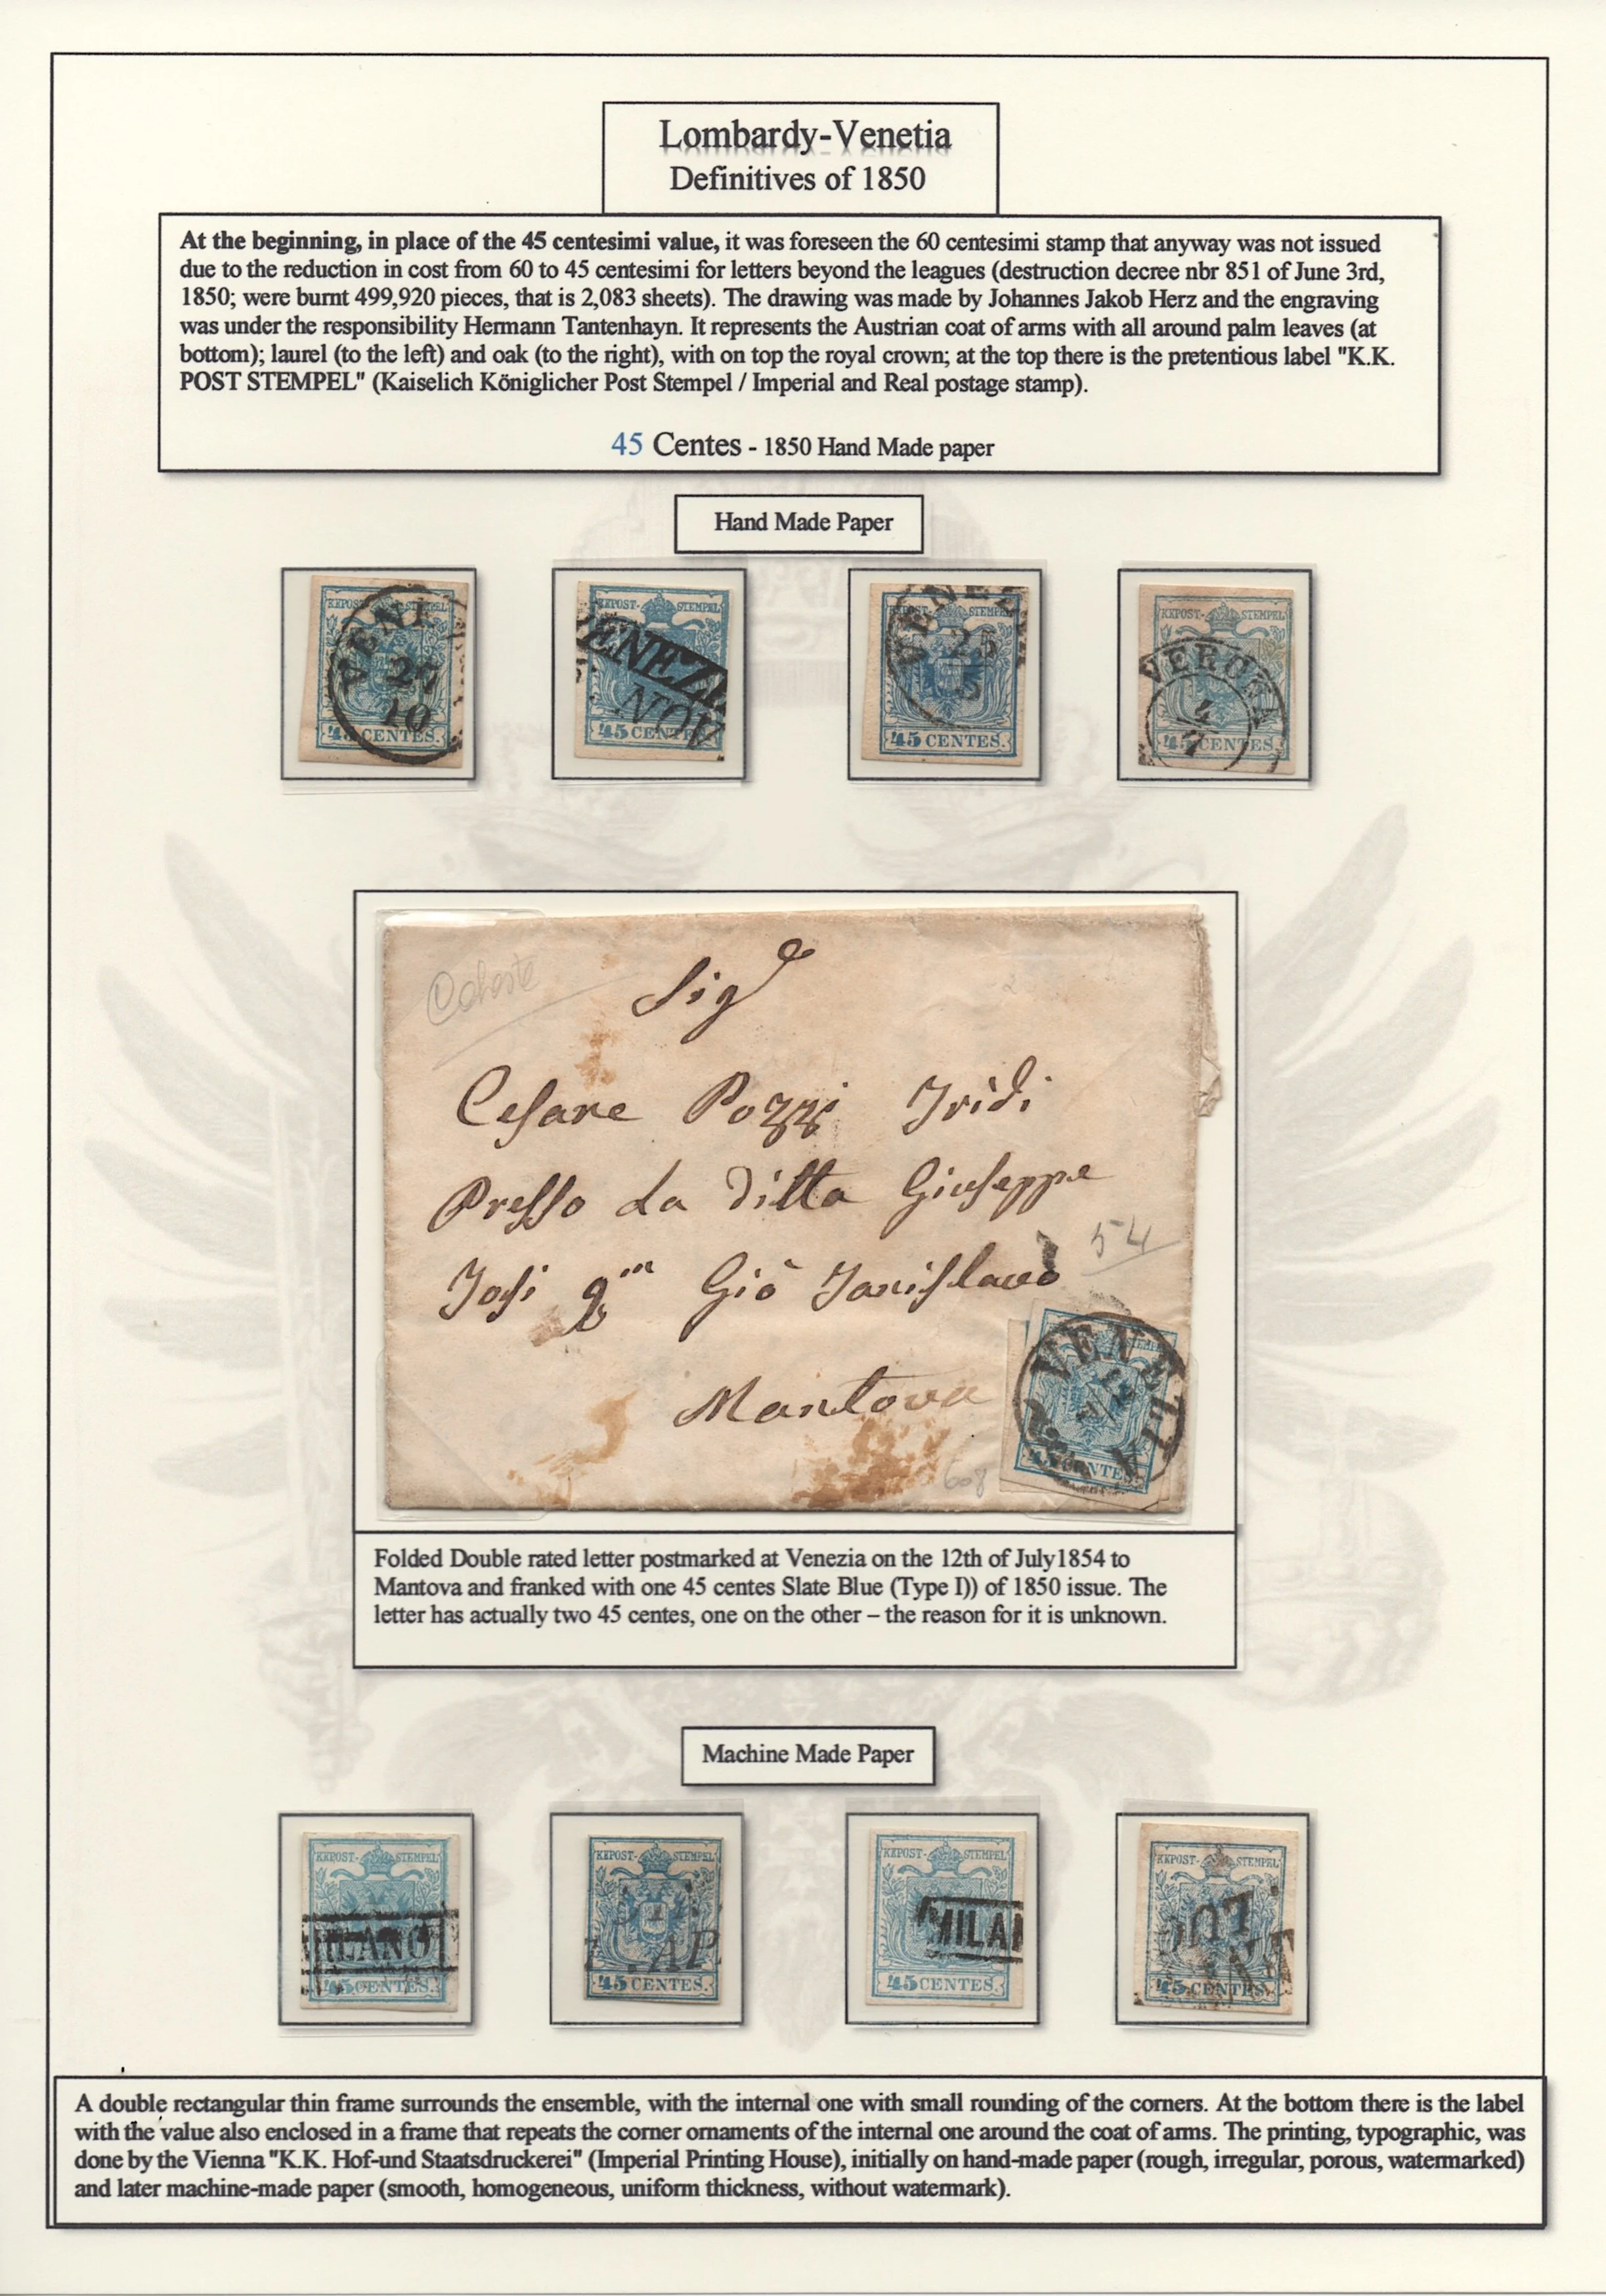 Lombardy-Venetia
Definitives of 1850
At the beginning, in place of the 45 centesimi value, it was foreseen the 60 centesimi stamp that anyway was not issued
due to the reduction in cost from 60 to 45 centesimi for letters beyond the leagues (destruction decree nbr 851 of June 3rd,
1850; were burnt 499,920 pieces, that is 2,083 sheets). The drawing was made by Johannes Jakob Herz and the engraving
was under the responsibility Hermann Tantenhayn. It represents the Austrian coat of arms with all around palm leaves (at
bottom); laurel (to the left) and oak (to the right), with on top the royal crown; at the top there is the pretentious label "K.K.
POST STEMPEL" (Kaiselich Königlicher Post Stempel / Imperial and Real postage stamp).
45 Centes - 1850 Hand Made paper
Hand Made Paper
KKPOST- STEMPEL
VENE
10
45 CENTES.
KKPOST- STEMPEL
ENEZI
NOV
45 CENTES.
KKPOST- STEMPEL
VENE
25
5
45 CENTES.
KKPOST- STEMPEL
VERONA
4
7
45 CENTES.
Sig
Cesare Pozzi
Presso La Ditta Giuseppe
54
Giò
Mantova
VENEZIA
608
Folded Double rated letter postmarked at Venezia on the 12th of July1854 to
Mantova and franked with one 45 centes Slate Blue (Type I)) of 1850 issue. The
letter has actually two 45 centes, one on the other – the reason for it is unknown.
Machine Made Paper
KKPOST- STEMPEL
MILANO
45 CENTES.
KKPOST- STEMPEL
AP
45 CENTES.
KKPOST- STEMPEL
MILAN
45 CENTES.
KKPOST- STEMPEL
45 CENTES.
A double rectangular thin frame surrounds the ensemble, with the internal one with small rounding of the corners. At the bottom there is the label
with the value also enclosed in a frame that repeats the corner ornaments of the internal one around the coat of arms. The printing, typographic, was
done by the Vienna "K.K. Hof-und Staatsdruckerei" (Imperial Printing House), initially on hand-made paper (rough, irregular, porous, watermarked)
and later machine-made paper (smooth, homogeneous, uniform thickness, without watermark).